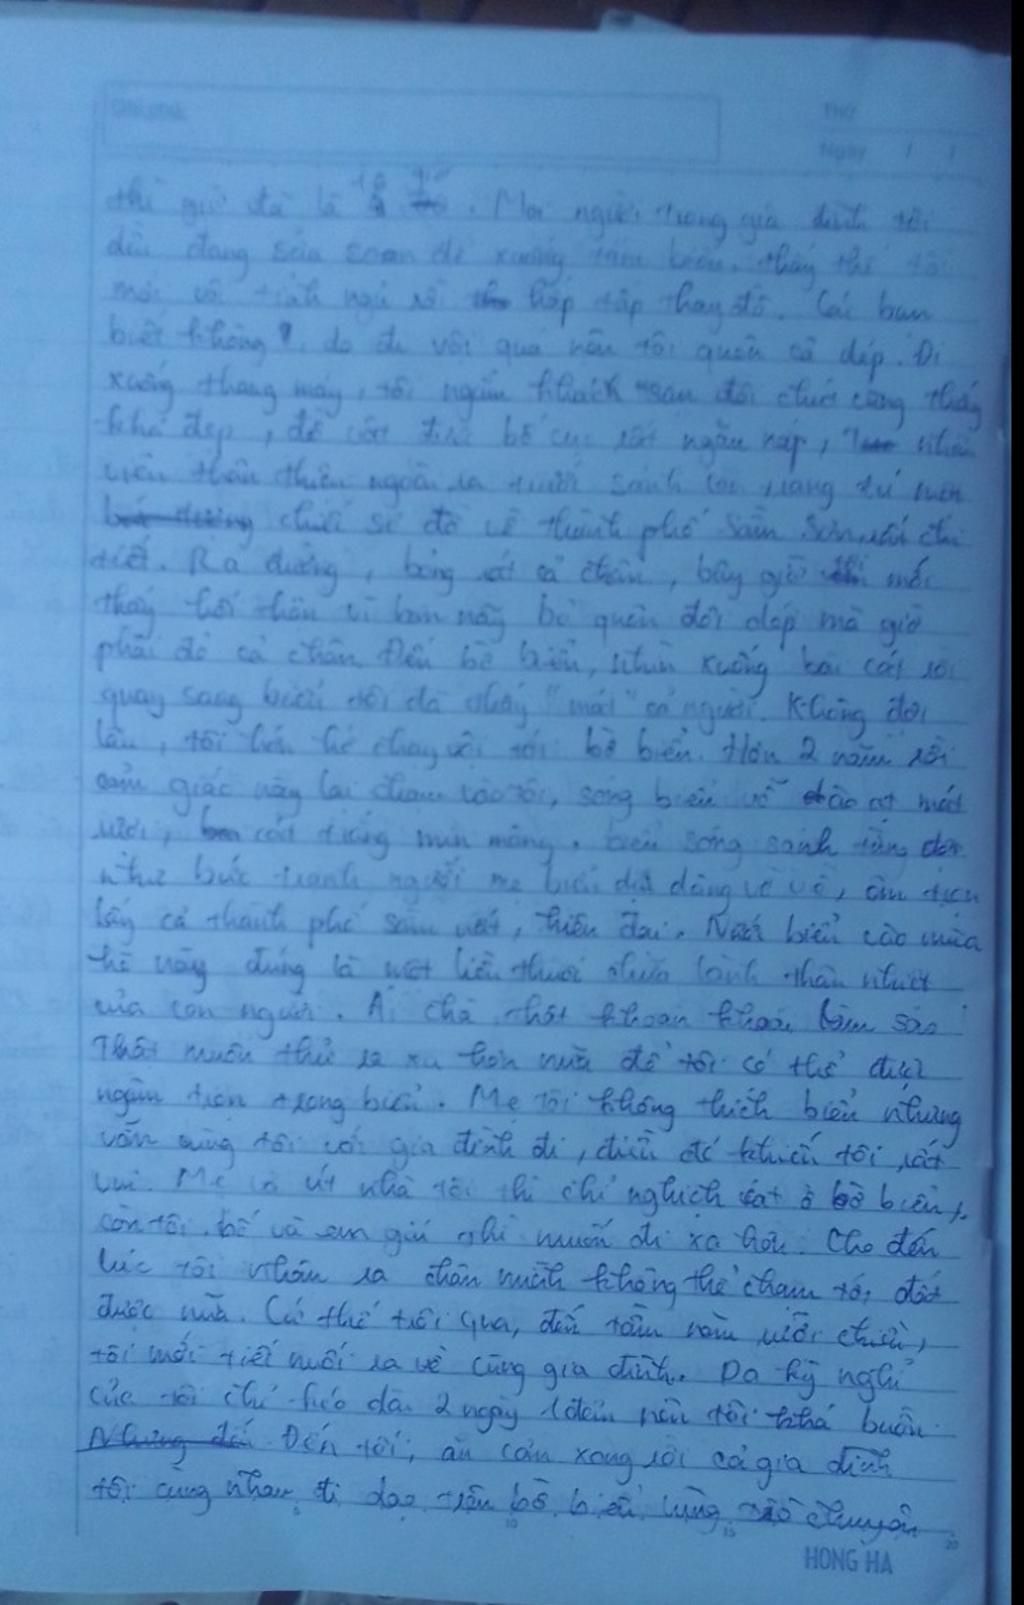 Thứ
Ngày / /
thì giờ đã là giờ. Mọi người trong gia đình tôi
đều đang sửa soạn để xuống tắm biển, thấy thế tôi
mới vô tình ngủ rồi hấp tấp thay đồ. Các bạn
biết không?, do đi vội quá nên tôi quên cả dép. Đi
xuống thang máy, tôi ngắm khách sạn đôi chút cũng thấy
khá đẹp, đồ còn được bố cục rất ngăn nắp, nhân
viên thân thiện ngoài ra dưới sảnh còn trang trí
chút sơ đồ về thành phố Sầm Sơn rất chi
tiết. Ra đường, bỏng cả chân, bây giờ mới
thấy hối hận vì ban nãy bỏ quên đôi dép mà giờ
phải đỏ cả chân. Đến bờ biển, nhìn xuống bãi cát rồi
quay sang biển tôi đã thấy "mát" cả người. Không đợi
lâu, tôi liền hè chạy vội tới bờ biển. Hơn 2 năm rồi
cảm giác này lại chạm vào tôi, sóng biển vỗ rào ạt mát
rượi, còn tiếng mịn màng, biển sóng sánh từng đợt
như bức tranh người mẹ biển dịu dàng vỗ về, ôm trọn
lấy cả thành phố sầm uất, hiện đại. Nước biển vào mùa
hè này đúng là một liều thuốc chữa lành thân nhiệt
của con người. Ái chà thật khoan khoái làm sao
Thật muốn thử ra xa hơn nữa để tôi có thể được
ngâm trọn trong biển. Mẹ tôi không thích biển nhưng
vẫn cùng tôi với gia đình đi, điều đó khiến tôi rất
vui. Mẹ và út nhà tôi thì chỉ nghịch cát ở bờ biển,
còn tôi, bố và em gái chỉ muốn đi xa hơn. Cho đến
lúc tôi nhận ra chân mình không thể chạm tới đất
được nữa. Cứ thế trôi qua, đến tầm năm rưỡi chiều,
tôi mới tiếc nuối ra về cùng gia đình. Do kỳ nghỉ
của tôi chỉ kéo dài 2 ngày 1 đêm nên tôi khá buồn.
Nhưng đến Đến tối, ăn cơm xong rồi cả gia đình
tôi cùng nhau đi dạo trên bờ biển cùng trò chuyện
5 10 15 20
HONG HA